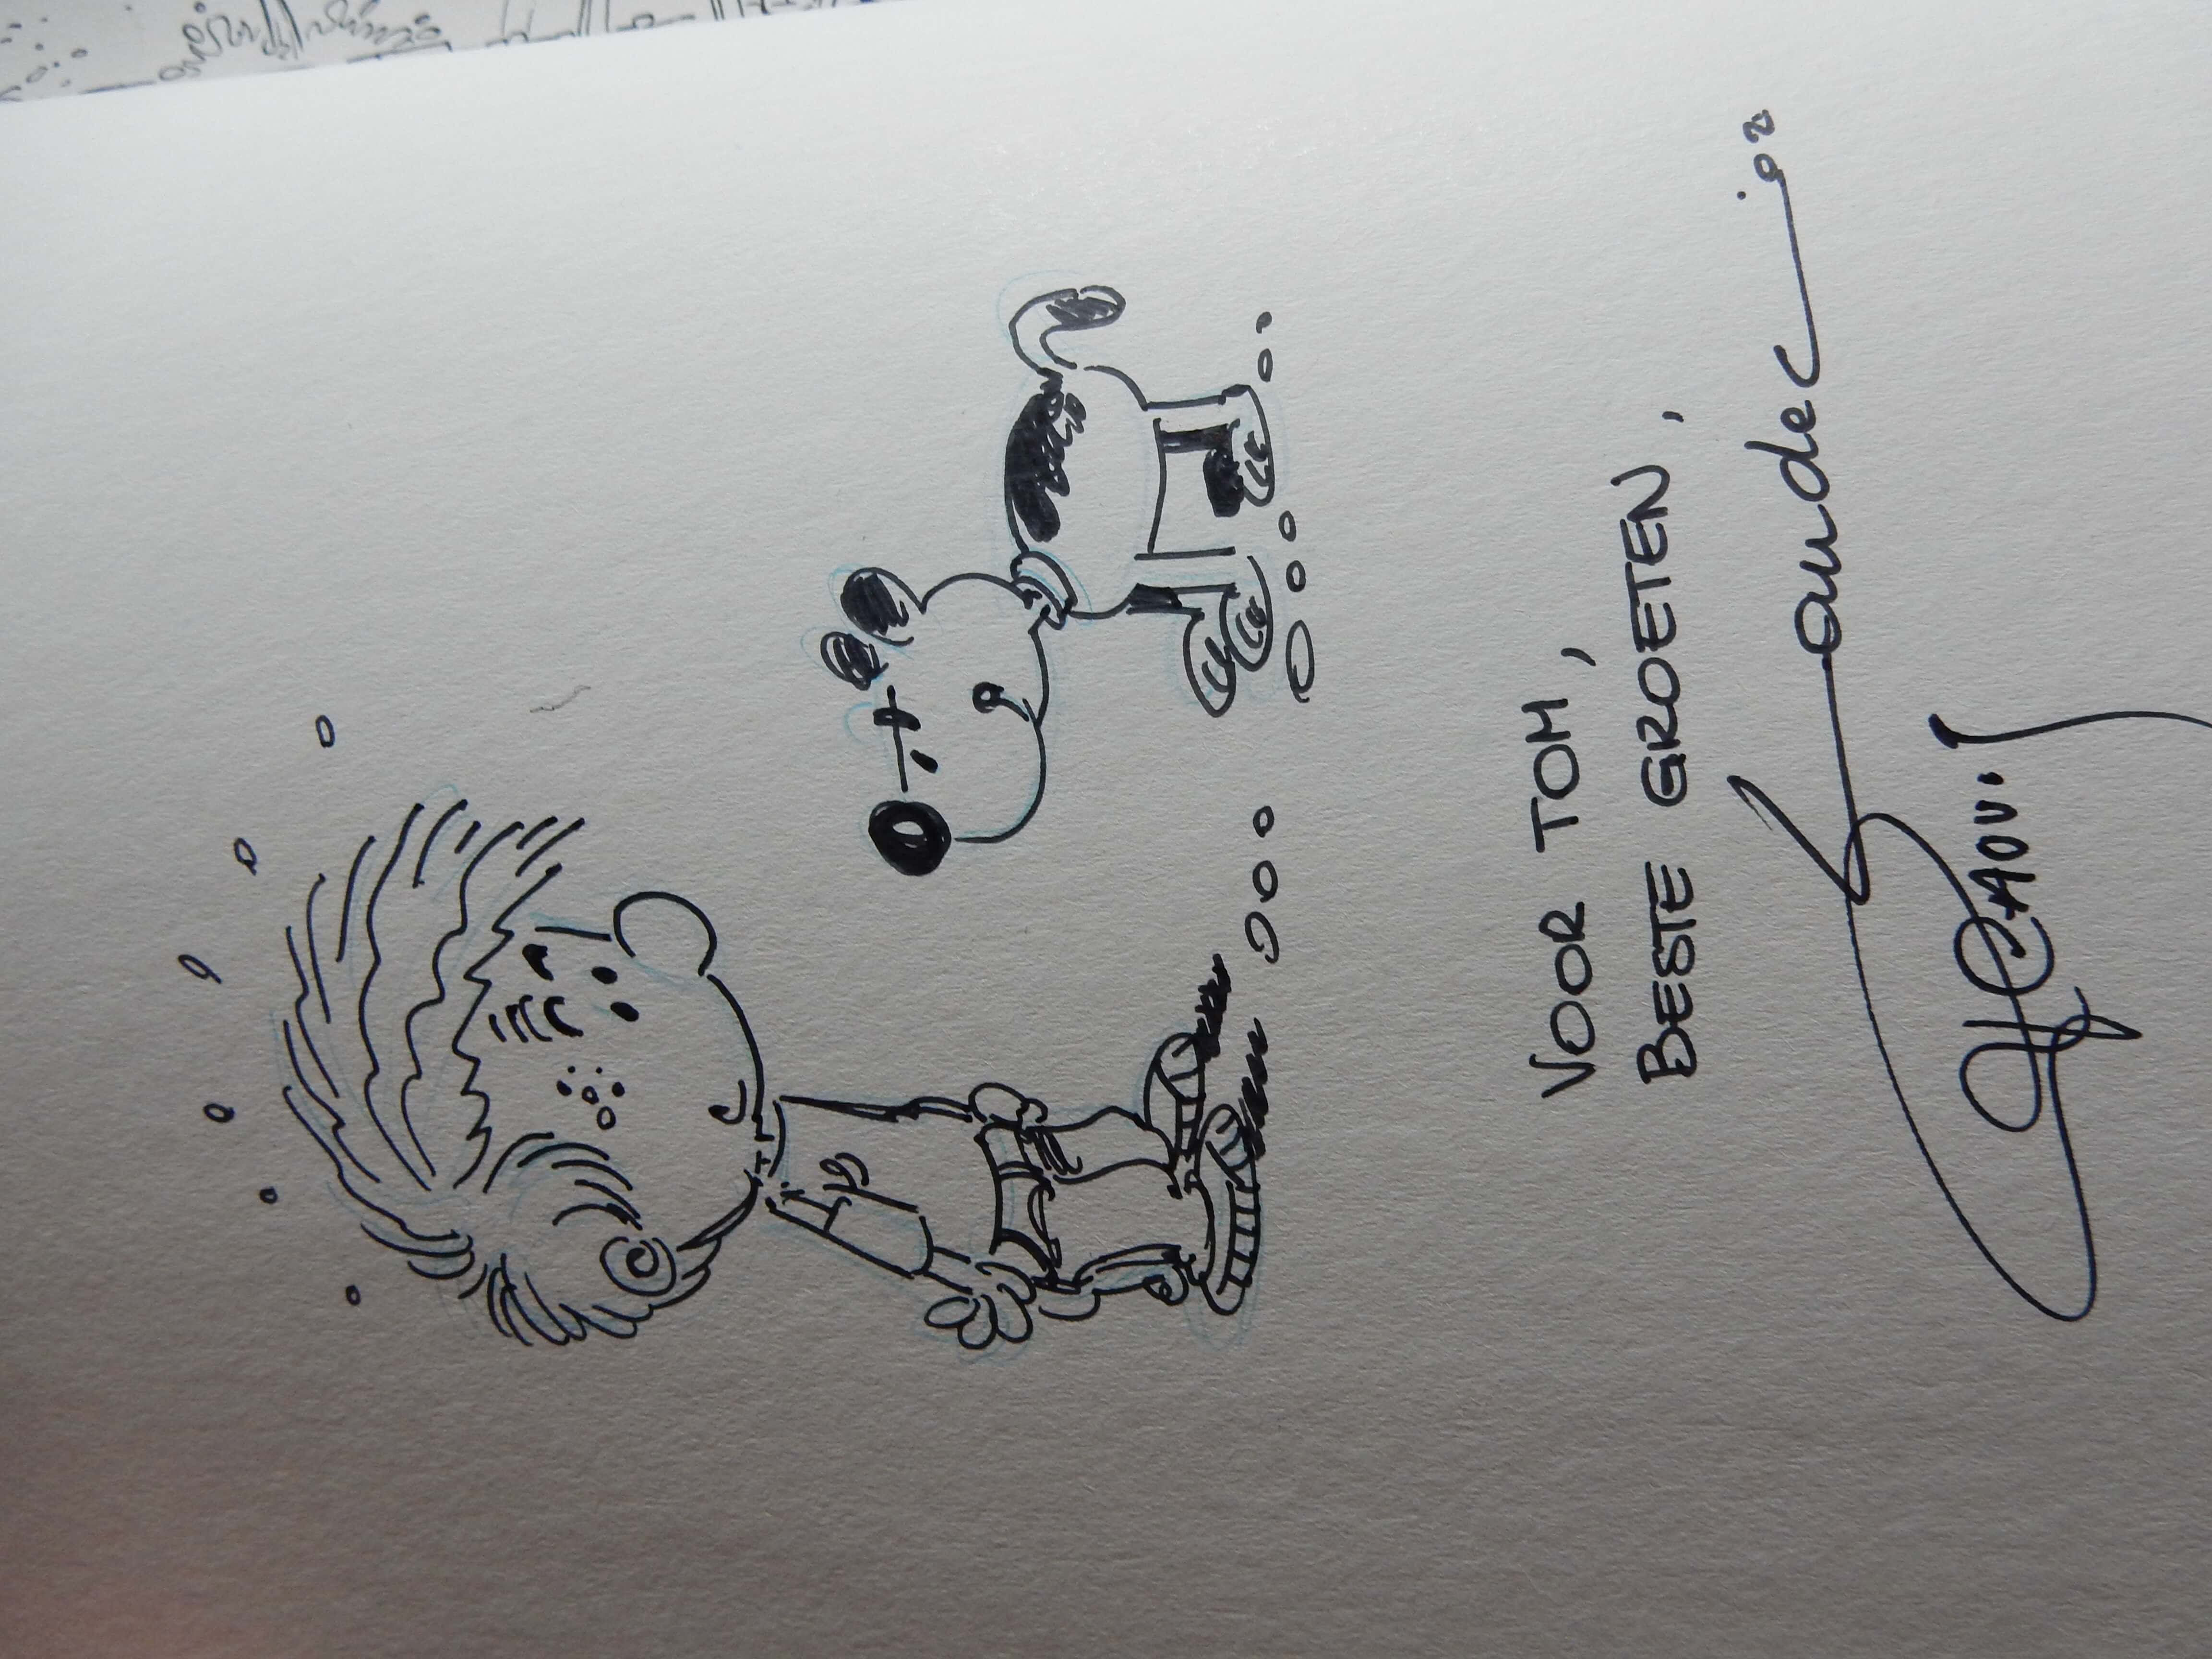 VOOR TOM,
BESTE GROETEN,
Laudec
CAUV.